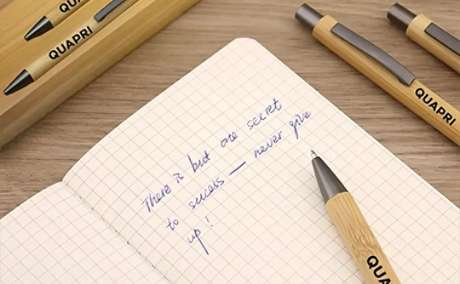 QUAPRI
QUAPRI
QUAPRI
QUAPRI
There is but one secret
to success — never give
up!
QUA